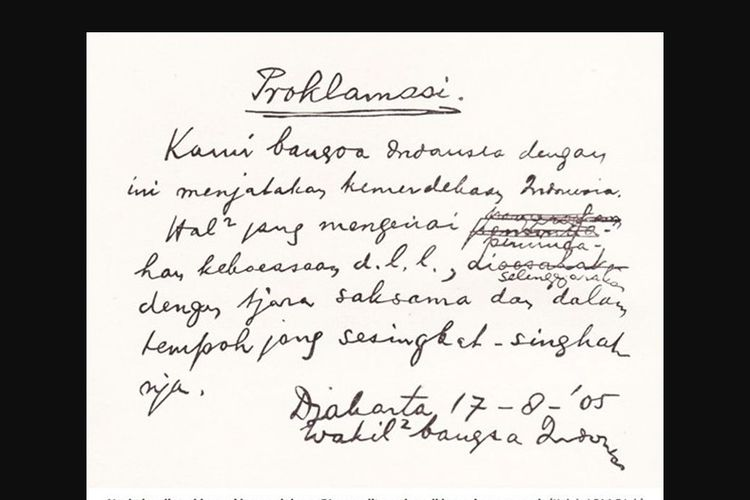 Proklamasi.
Kami bangsa Indonesia dengan
ini menjatakan kemerdekaan Indonesia.
Hal² jang mengenai
peminda-
han kekoeasaan d.l.l., dioesahakan
selenggarakan
dengan tjara saksama dan dalam
tempoh jang sesingkat-singkat
nja.
Djakarta, 17 - 8 - '05
Wakil² bangsa Indonesia